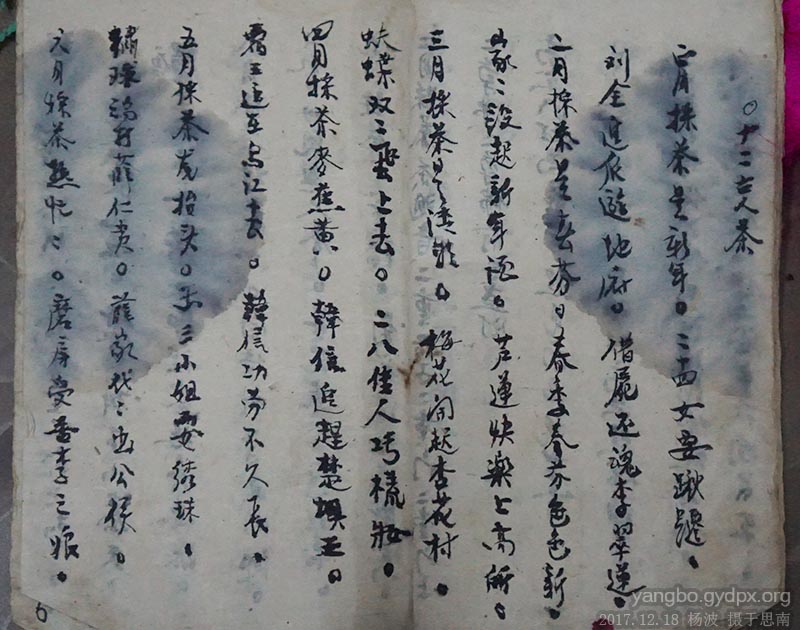 十二古人茶
正月採茶是新年。二十四女要鞦韆。
刘全進瓜遊地府。借屍还魂李翠蓮。
二月採茶是春分。春季春芬色色新。
家二段起新年酒。芦蓮快樂上高所。
三月採茶是清明。梅花開起杏花村。
蚨蝶双二盃上去。二八佳人巧梳妝。
四月採茶麥蕉黃。韓信追趕楚覇王。
覇王追至烏江去。韓信功劳不久長。
五月採茶龙抬头。王三小姐要綉珠。
繡球打薛仁贵。薛家代二出公侯。
六月採茶热忙二。磨房受苦李三娘。
6
yangbo.gydpx.org
2017.12.18 杨波 摄于思南